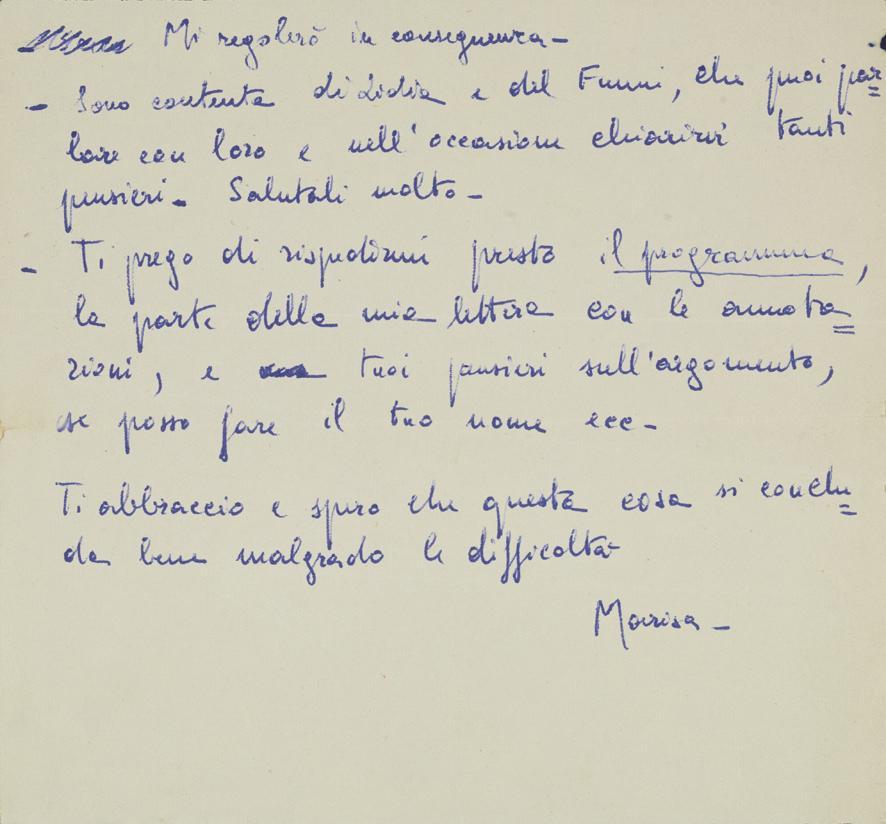 Mi regolerò in conseguenza -
- Sono contenta di Lidia e del Funni, che puoi par=
lare con loro e nell'occasione chiarirvi tanti
pensieri - Salutali molto -
- Ti prego di rispedirmi presto il programma,
la parte della mia lettera con le annota=
zioni, e tuoi pensieri sull'argomento,
se posso fare il tuo nome ecc -
Ti abbraccio e spero che questa cosa si conclu=
da bene malgrado le difficoltà
Marisa -